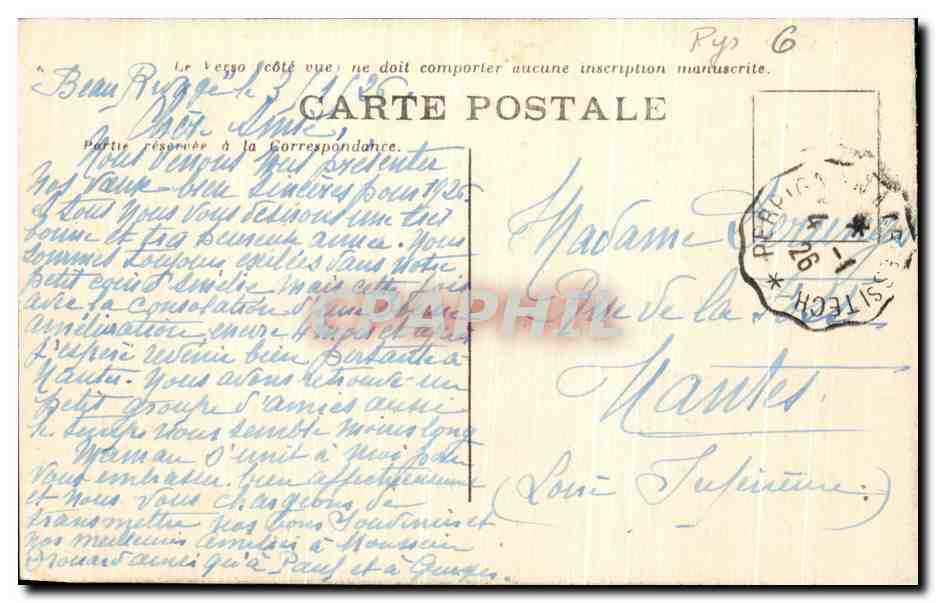 Pys 6
Le Verso (côté vue) ne doit comporter aucune inscription manuscrite.
Beau Rivage le 3/1/26
CARTE POSTALE
Chère Amie,
Partie réservée à la Correspondance.
Nous venons vous présenter
nos vœux bien sincères pour 1926.
tous nous vous désirons une très
bonne et très heureuse année. Nous
sommes toujours exilées dans notre
petit coin d'Amélie mais cette fois
avec la consolation d'une bonne
amélioration encore et que
j'espère revenir bien portante à
Nantes. Nous avons retrouvé un
petit groupe d'amies aussi
le temps nous semble moins long
Maman s'unit à moi pour
vous embrasser bien affectueusement
et nous vous chargeons de
transmettre nos bons souvenirs et
nos meilleures amitiés à Monsieur
ainsi qu'à Paul et à Georges.
Madame
Rue de la
Nantes
(Loire Inférieure)
PERPIGNAN
4 -1 26
CRAPHIL